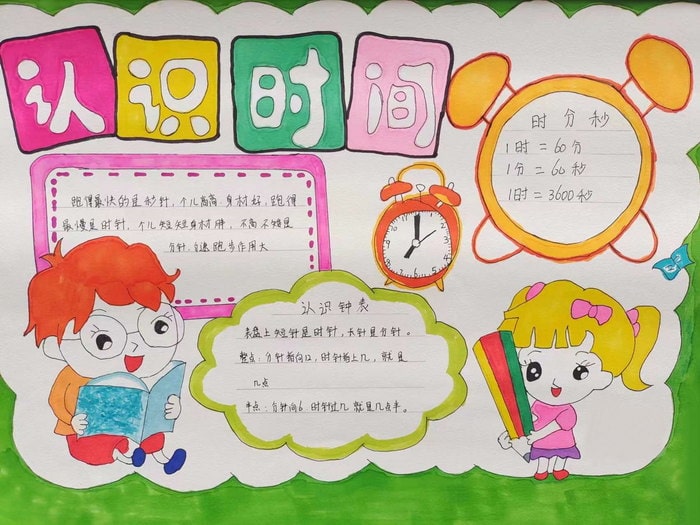 认识时间
时 分 秒
1时 = 60分
1分 = 60秒
1时 = 3600秒
跑得最快的是秒针，个儿高高身材好，跑得
最慢是时针，个儿短短身材胖，不高不矮是
分针，匀速跑步作用大
认识钟表
表盘上短针是时针，长针是分针。
整点：分针指向12，时针指上几，就是
几点
半点：分针向6 时针过几 就是几点半。